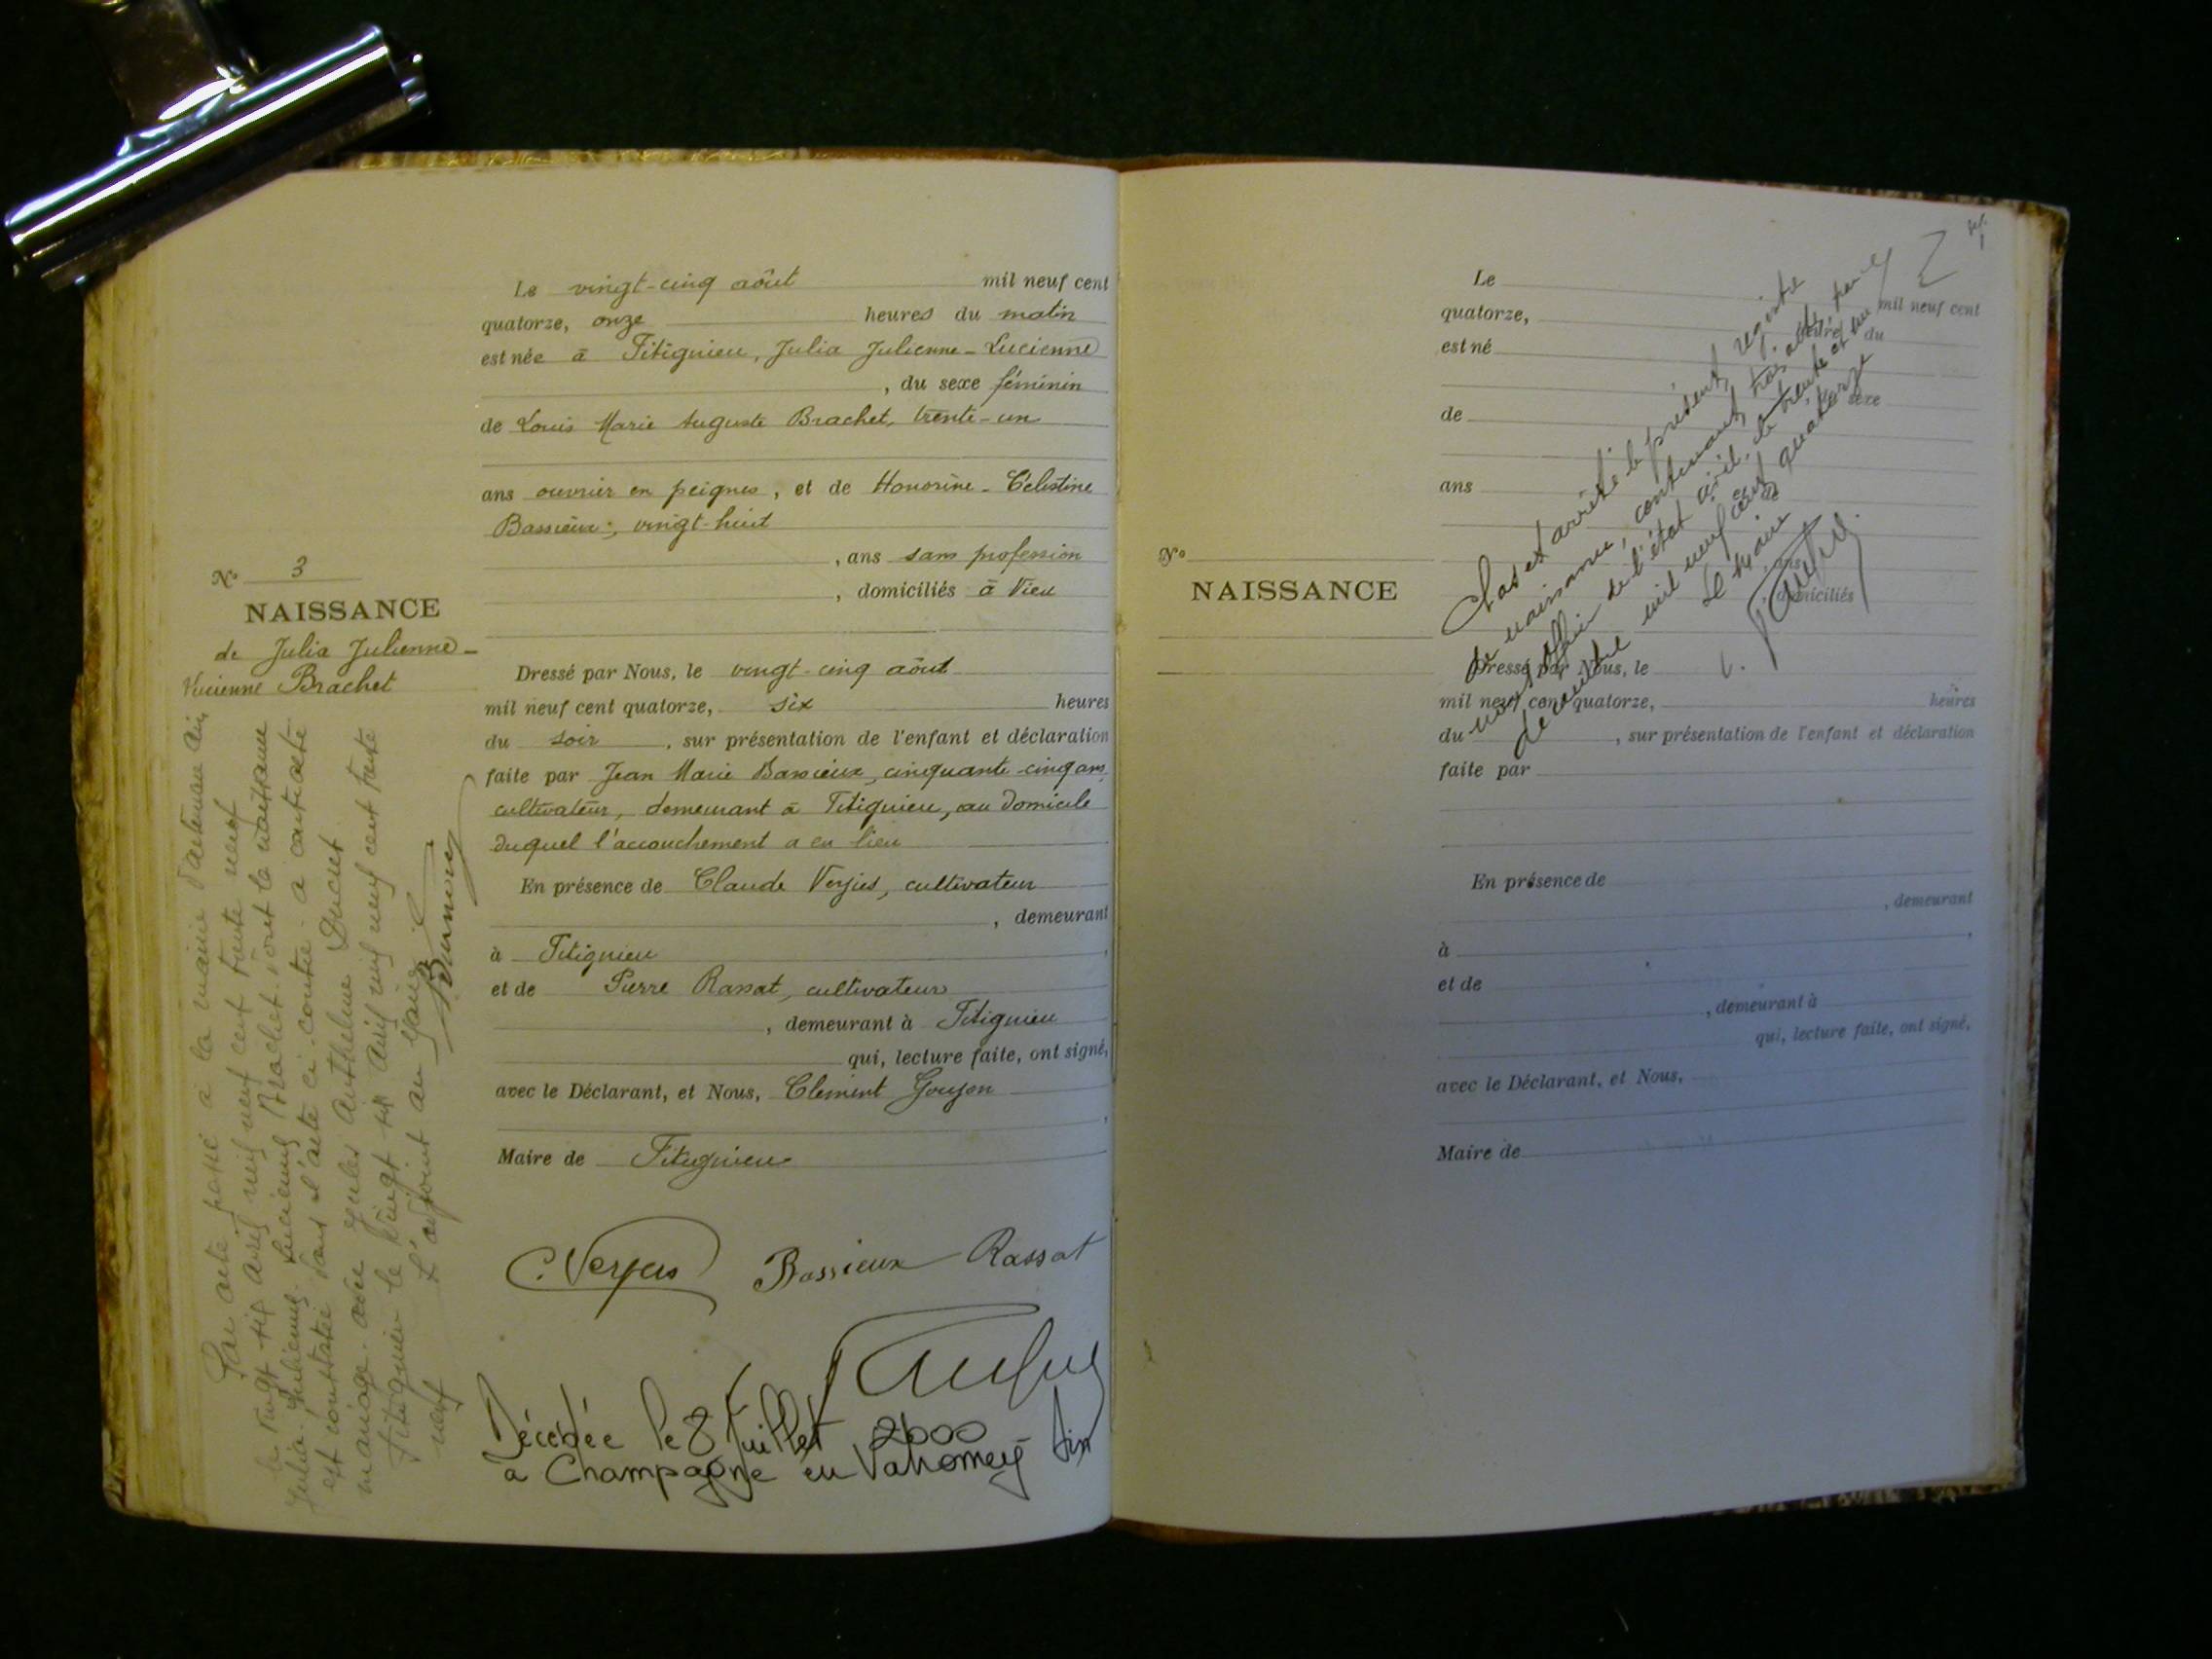 Le vingt-cinq août mil neuf cent
quatorze, onze heures du matin
est née à Fitignieu, Julia Julienne-Lucienne
, du sexe féminin
de Louis Marie Auguste Brachet, trente-un
ans ouvrier en peignes, et de Honorine-Célestine
Bassieux, vingt-huit
, ans sans profession
, domiciliés à Vieu
N° 3
NAISSANCE
de Julia Julienne-
Lucienne Brachet
Dressé par Nous, le vingt-cinq août
mil neuf cent quatorze, six heures
du soir, sur présentation de l'enfant et déclaration
faite par Jean Marie Bassieux, cinquante-cinq ans,
cultivateur, demeurant à Fitignieu, au domicile
duquel l'accouchement a eu lieu
En présence de Claude Verjus, cultivateur
, demeurant
à Fitignieu,
et de Pierre Rassat, cultivateur
, demeurant à Fitignieu
qui, lecture faite, ont signé,
avec le Déclarant, et Nous, Clément Goujon
,
Maire de Fitignieu
C. Verjus Bassieux Rassat
Décédée le 8 Juillet 2000
à Champagne en Valromey Ain
Par acte passé à la mairie
le vingt-six avril mil neuf cent trente neuf
Julia Julienne Lucienne Brachet dont la naissance
est constatée dans l'acte ci-contre a contracté
mariage avec Jules Anthelme Ducret
Fitignieu le vingt-six avril mil neuf cent trente
neuf L'adjoint au Maire
Le mil neuf cent
quatorze, heures du
est né
, du sexe
de
ans et de
, ans
, domiciliés
N°
NAISSANCE
Dressé par Nous, le
mil neuf cent quatorze, heures
du , sur présentation de l'enfant et déclaration
faite par
En présence de
, demeurant
à ,
et de
, demeurant à
qui, lecture faite, ont signé,
avec le Déclarant, et Nous,
Maire de
Clos et arrêté le présent registre
de naissance, contenant trois actes, par
nous officier de l'état civil, le trente et un
décembre mil neuf cent quatorze
Le Maire